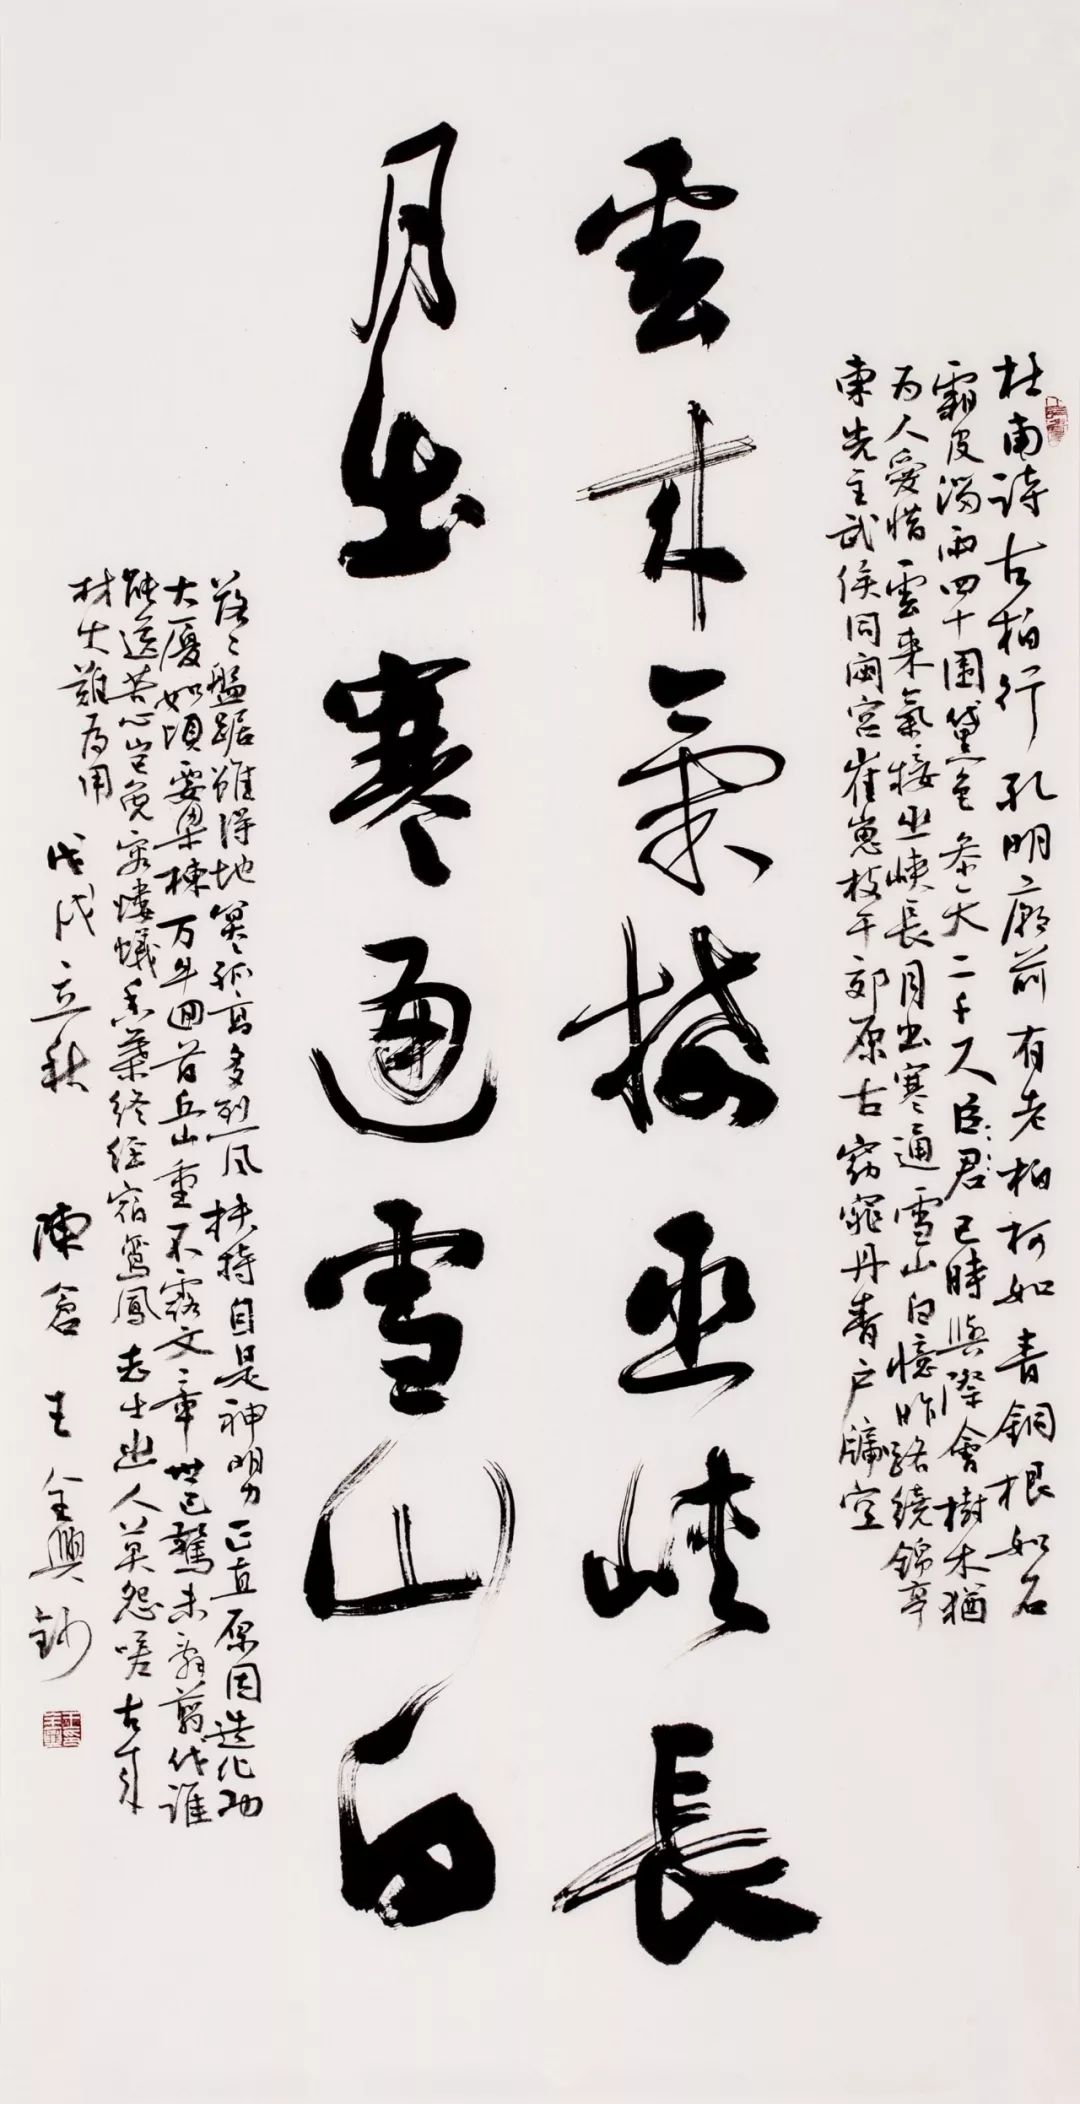 杜甫詩古柏行孔明廟前有老柏柯如青銅根如石
霜皮溜雨四十圍黛色參天二千尺臣君已時與際會樹木猶
为人愛惜雲来氣接巫峽長月出寒通雪山白憶昨路繞錦亭
東先主武侯同閟宮崔嵬枝干郊原古窈窕丹青戶牖空
雲来氣接巫峽長
月出寒通雪山白
落々盤踞雖得地冥々孤高多烈風扶持自是神明力正直原因造化功
大廈如傾要梁棟万牛回首丘山重不露文章世已驚未辭剪伐誰
能送苦心豈免容螻蟻香葉終經宿鸞鳳志士幽人莫怨嗟古来
材大難為用
戊戌立秋 陳倉 王金興鈔